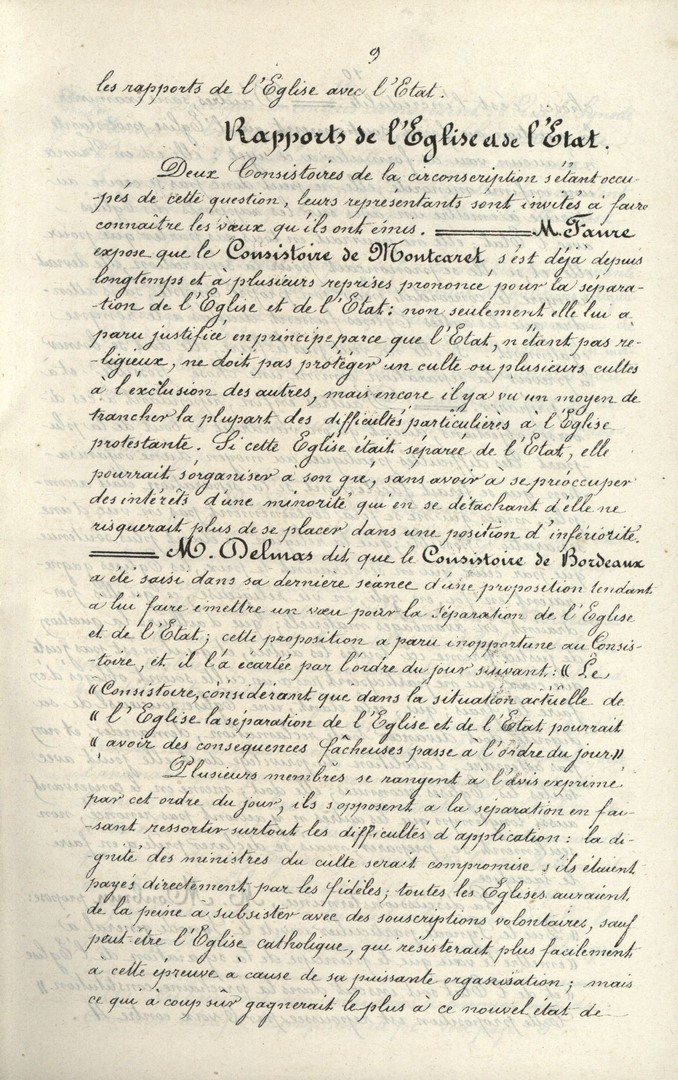 9
les rapports de l'Eglise avec l'Etat.
Rapports de l'Eglise et de l'Etat.
Deux Consistoires de la circonscription s'étant occu-
pés de cette question, leurs représentants sont invités à faire
connaître les vœux qu'ils ont émis. M. Faure
expose que le Consistoire de Montcaret s'est déjà depuis
longtemps et à plusieurs reprises prononcé pour la sépara-
-tion de l'Eglise et de l'Etat: non seulement elle lui a
paru justifiée en principe parce que l'Etat, n'étant pas re-
-ligieux, ne doit pas protéger un culte ou plusieurs cultes
à l'exclusion des autres, mais encore il y a vu un moyen de
trancher la plupart des difficultés particulières à l'Eglise
protestante. Si cette Eglise était séparée de l'Etat, elle
pourrait s'organiser à son gré, sans avoir à se préoccuper
des intérêts d'une minorité qui en se détachant d'elle ne
risquerait plus de se placer dans une position d'infériorité.
M. Delmas dit que le Consistoire de Bordeaux
a été saisi dans sa dernière séance d'une proposition tendant
à lui faire émettre un vœu pour la séparation de l'Eglise
et de l'Etat; cette proposition a paru inopportune au Consis-
-toire, et il l'a écartée par l'ordre du jour suivant: « Le
« Consistoire, considérant que dans la situation actuelle de
« l'Eglise la séparation de l'Eglise et de l'Etat pourrait
« avoir des conséquences fâcheuses passe à l'ordre du jour »
Plusieurs membres se rangent à l'avis exprimé
par cet ordre du jour, ils s'opposent à la séparation en fai-
-sant ressortir surtout les difficultés d'application: la di-
gnité des ministres du culte serait compromise s'ils étaient
payés directement par les fidèles; toutes les Eglises auraient
de la peine à subsister avec des souscriptions volontaires, sauf
peut-être l'Eglise catholique, qui résisterait plus facilement
à cette épreuve à cause de sa puissante organisation; mais
ce qui à coup sûr gagnerait le plus à ce nouvel état de